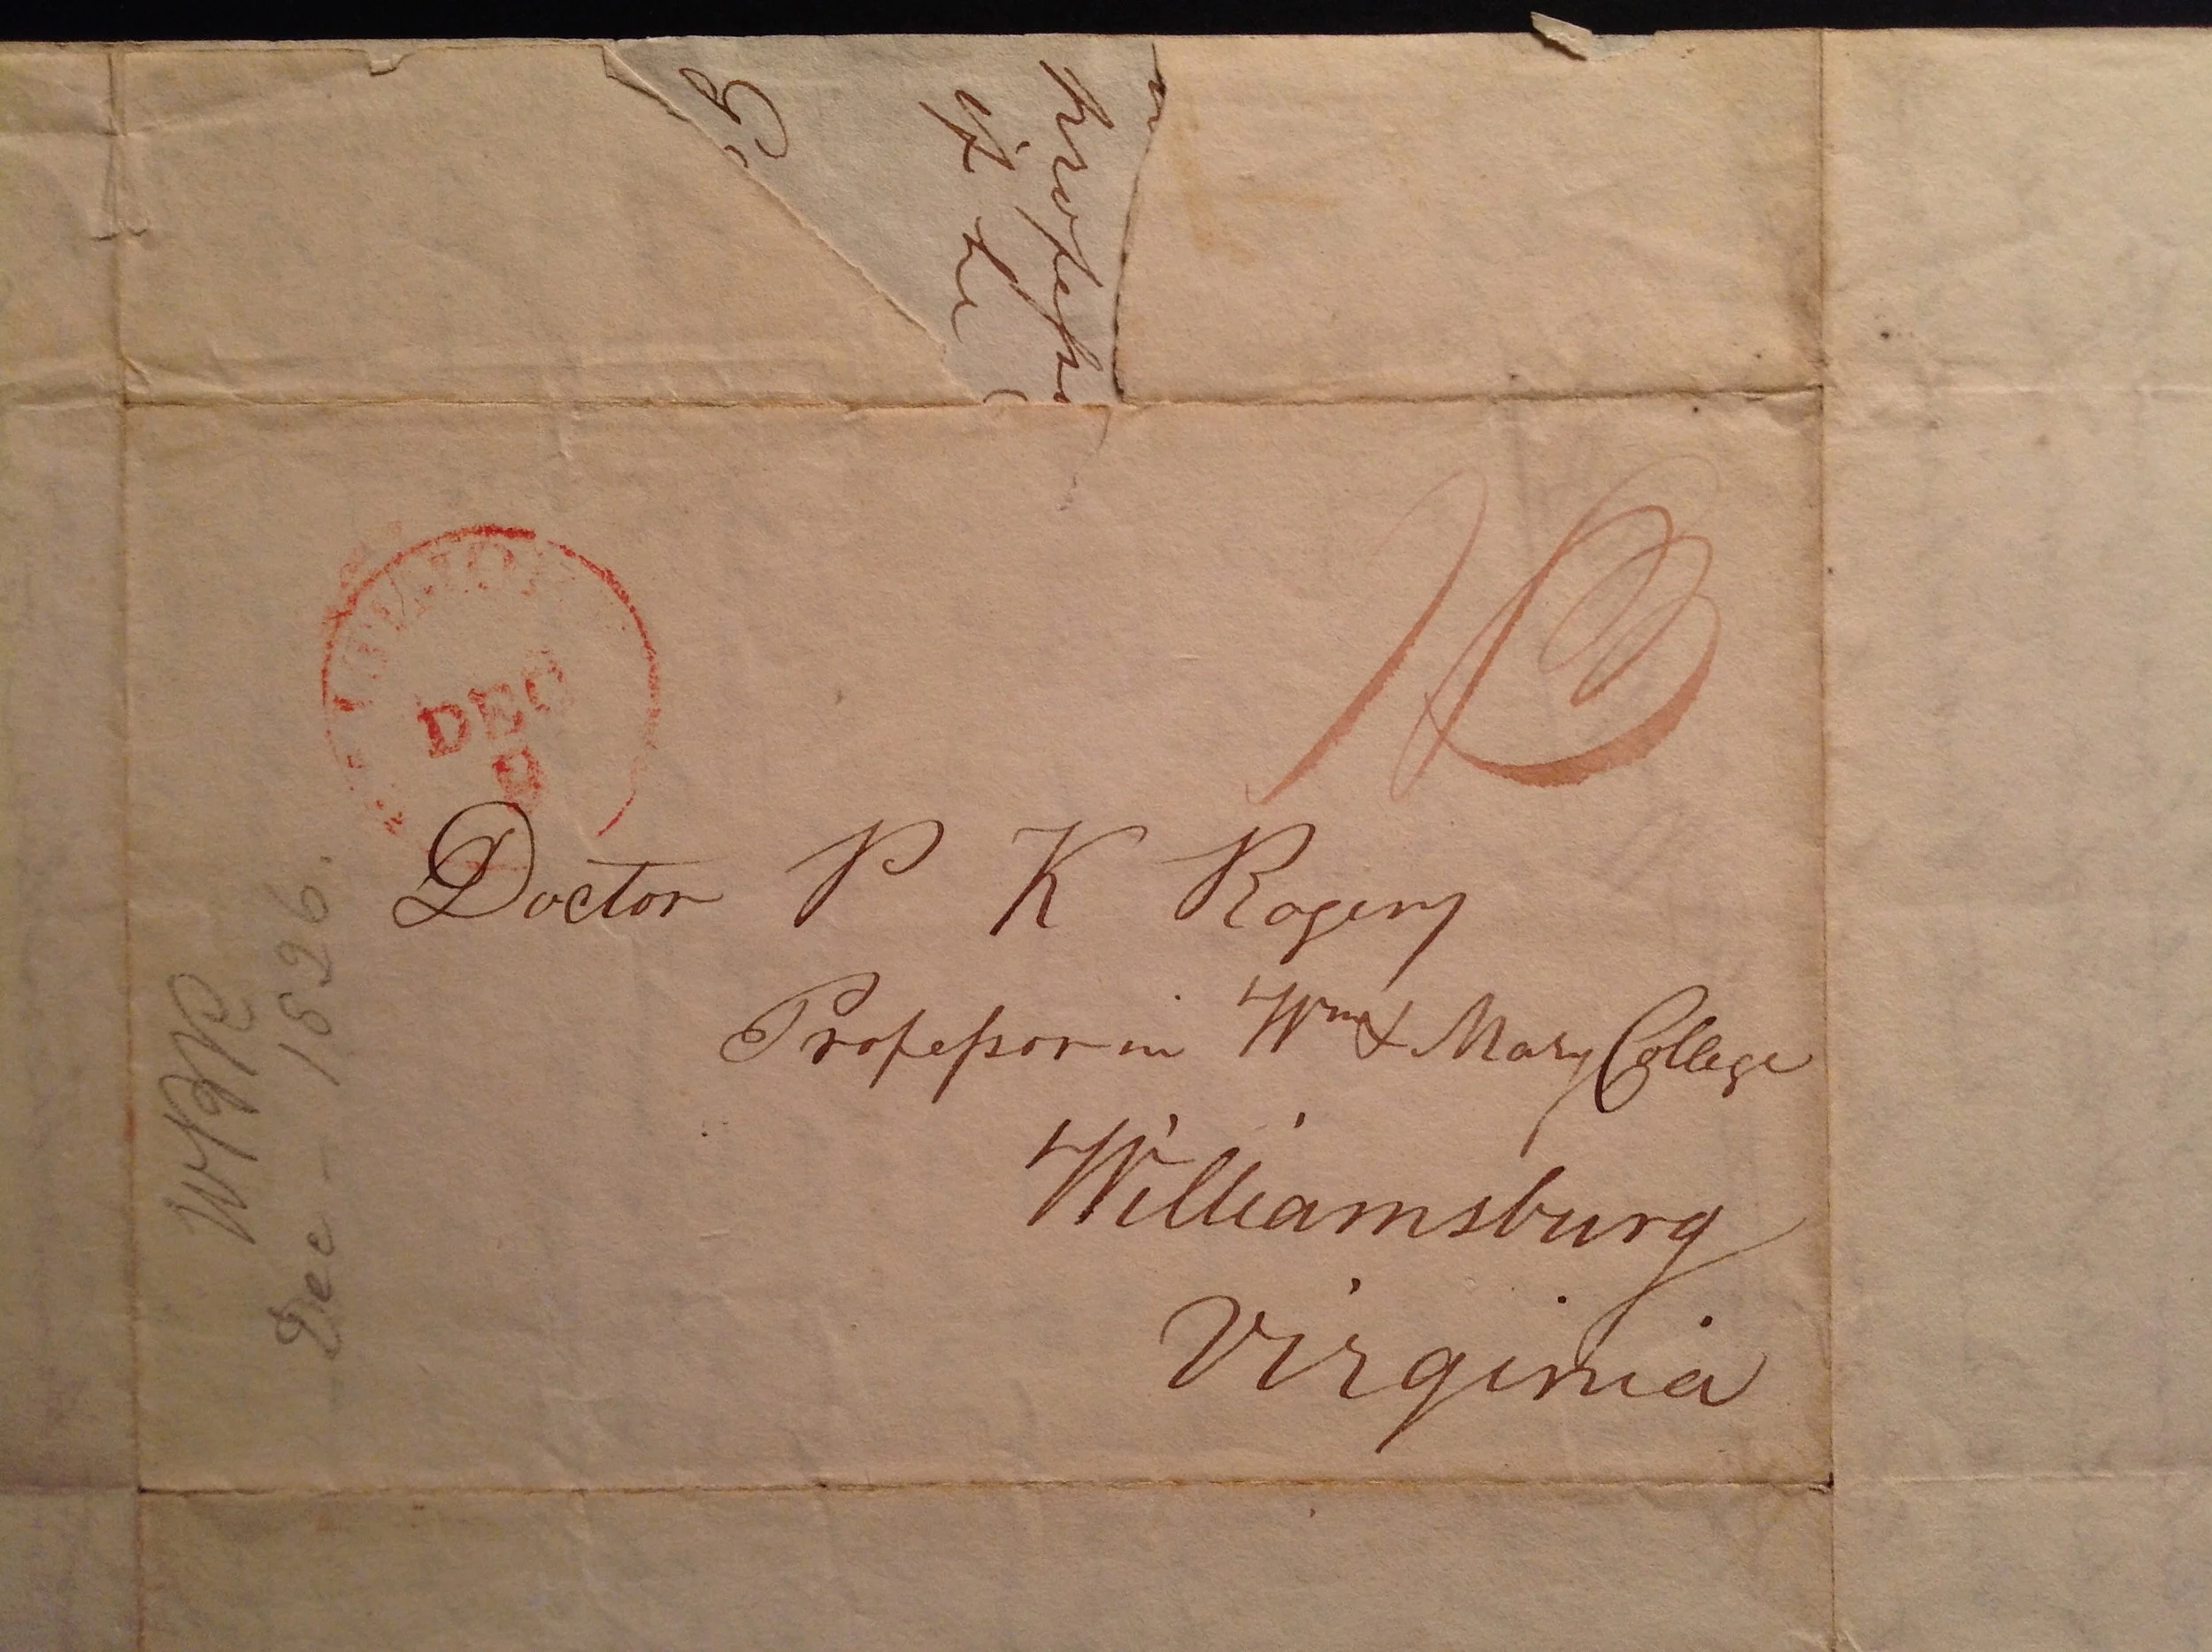 DEC
9
10
Doctor P K Rogers
Professor in Wm & Mary College
Williamsburg
Virginia
Dec - 1826.